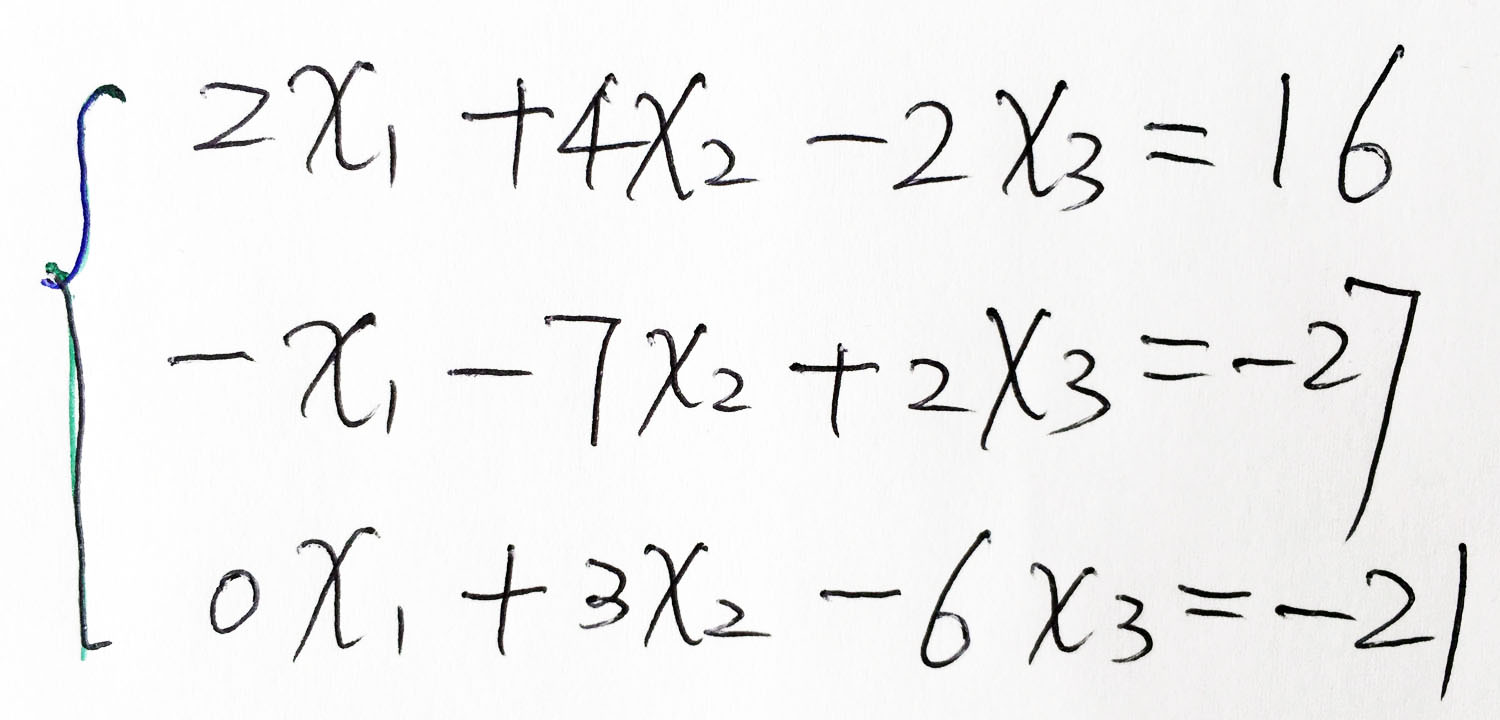 2x₁ + 4x₂ - 2x₃ = 16
-x₁ - 7x₂ + 2x₃ = -27
0x₁ + 3x₂ - 6x₃ = -21